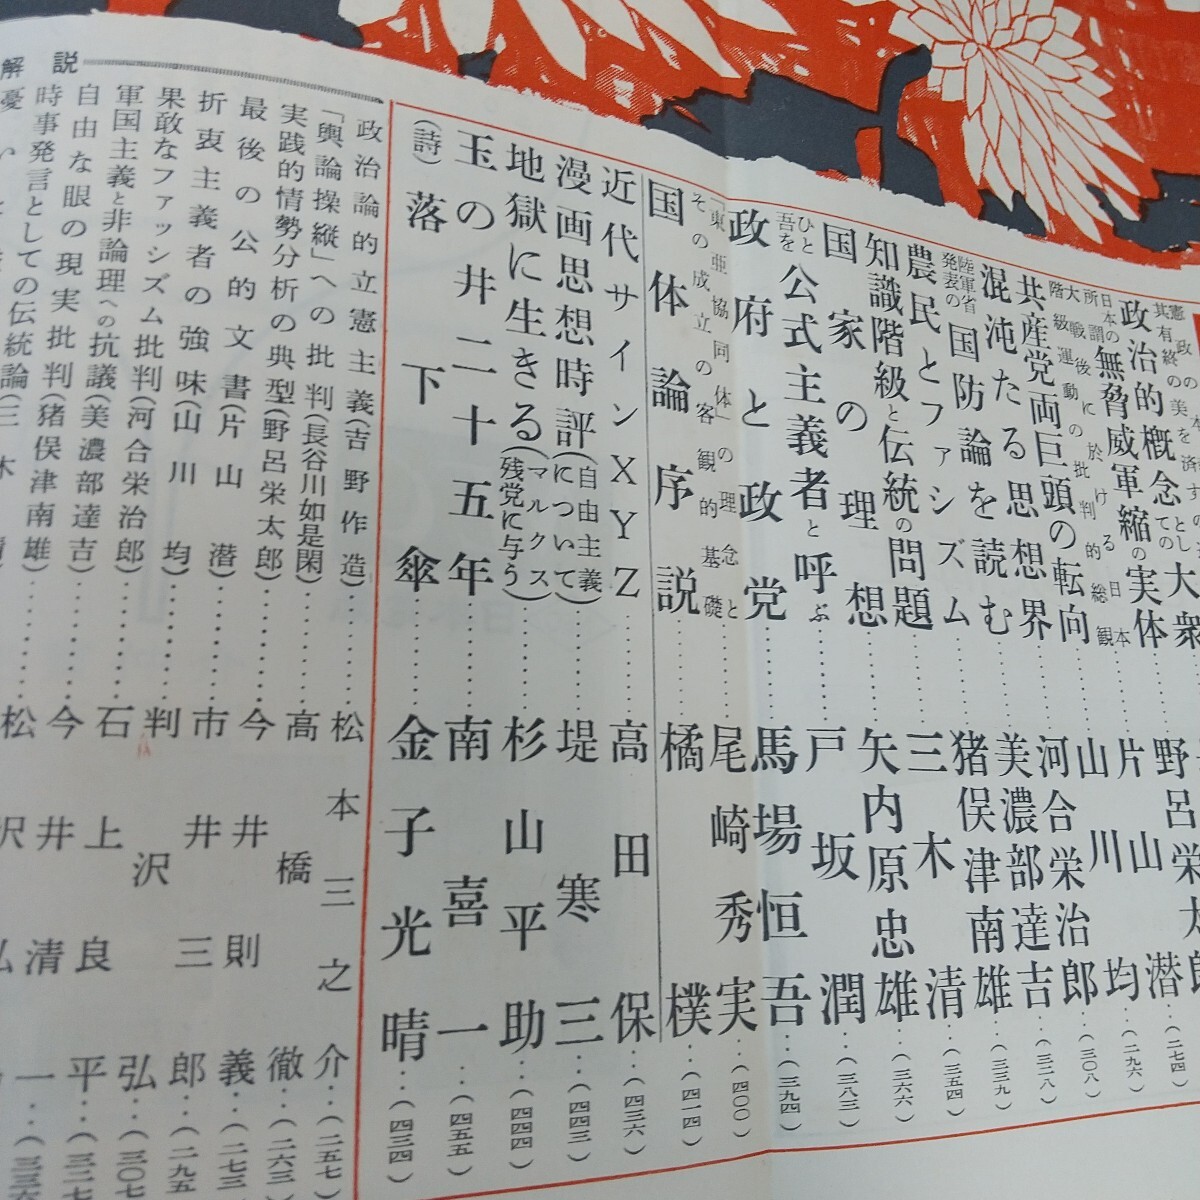 政治的概念としての大衆……野呂栄太郎…(二七四)
日本の所謂無脅威軍縮の実体……片山潜…(二九六)
大戦後に於ける日本階級運動の批判的総観……山川均…(三〇八)
共産党両巨頭の転向……河合栄治郎…(三二八)
混沌たる思想界……美濃部達吉…(三三九)
陸軍省発表の国防論を読む……猪俣津南雄…(三五四)
農民とファシズム……三木清…(三六六)
知識階級と伝統の問題……矢内原忠雄…(三八三)
国家の理想……戸坂潤…(三九四)
ひと吾を公式主義者と呼ぶ……馬場恒吾
政府と政党
「東亜協同体」の理念とその成立の客観的基礎……尾崎秀実…(四〇〇)
国体論序説……橘樸…(四一四)
近代サインXYZ……高田保…(四三六)
漫画思想時評(自由主義について)……堤寒三…(四四三)
地獄に生きる(マルクス残党に与う)……杉山平助…(四四四)
玉の井二十五年……南喜一…(四五五)
(詩)落下傘……金子光晴…(四三四)
解説
政治論的立憲主義(吉野作造)……松本三之介…(二五七)
「輿論操縦」への批判(長谷川如是閑)……高橋徹…(二六三)
実践的情勢分析の典型(野呂栄太郎)……今井則義…(二七三)
最後の公的文書(片山潜)……市井三郎…(二九五
折衷主義者の強味(山川均)……判沢弘…(三〇七
果敢なファッシズム批判(河合栄治郎)……石上良平…(三二七
軍国主義と非論理への抗議(美濃部達吉)……今井清一…(三三六
自由な眼の現実批判(猪俣津南雄)……松沢弘
時事発言としての伝統論(三木清
憂い